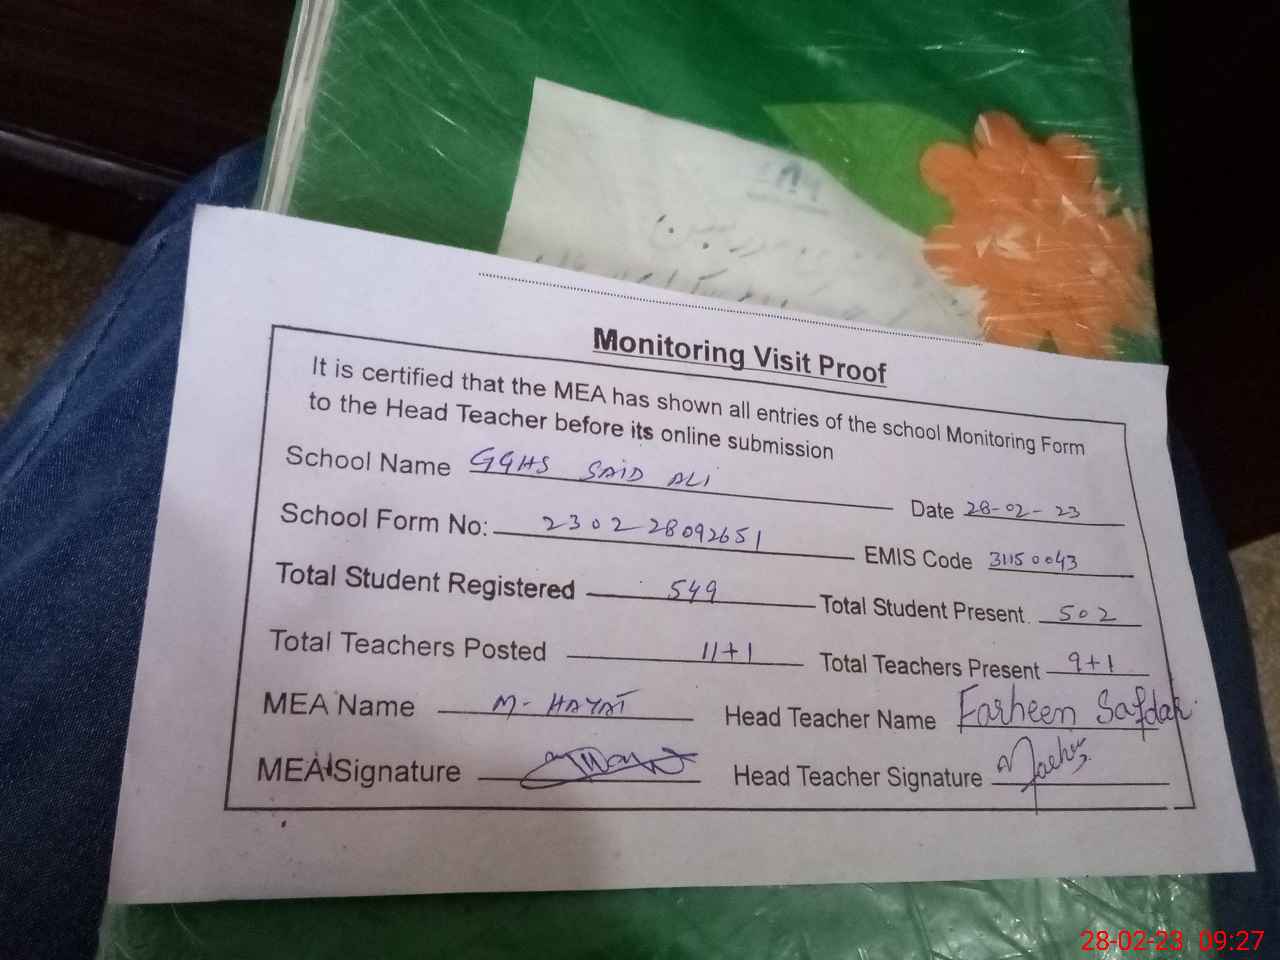 Monitoring Visit Proof
It is certified that the MEA has shown all entries of the school Monitoring Form
to the Head Teacher before its online submission
School Name GGHS SAID ALI
Date 28-02-23
School Form No: 230228092651
EMIS Code 31150043
Total Student Registered 549
Total Student Present 502
Total Teachers Posted 11+1
Total Teachers Present 9+1
MEA Name M-HAYAT
Head Teacher Name Farheen Safdar
MEA Signature
Head Teacher Signature
28-02-23 09:27